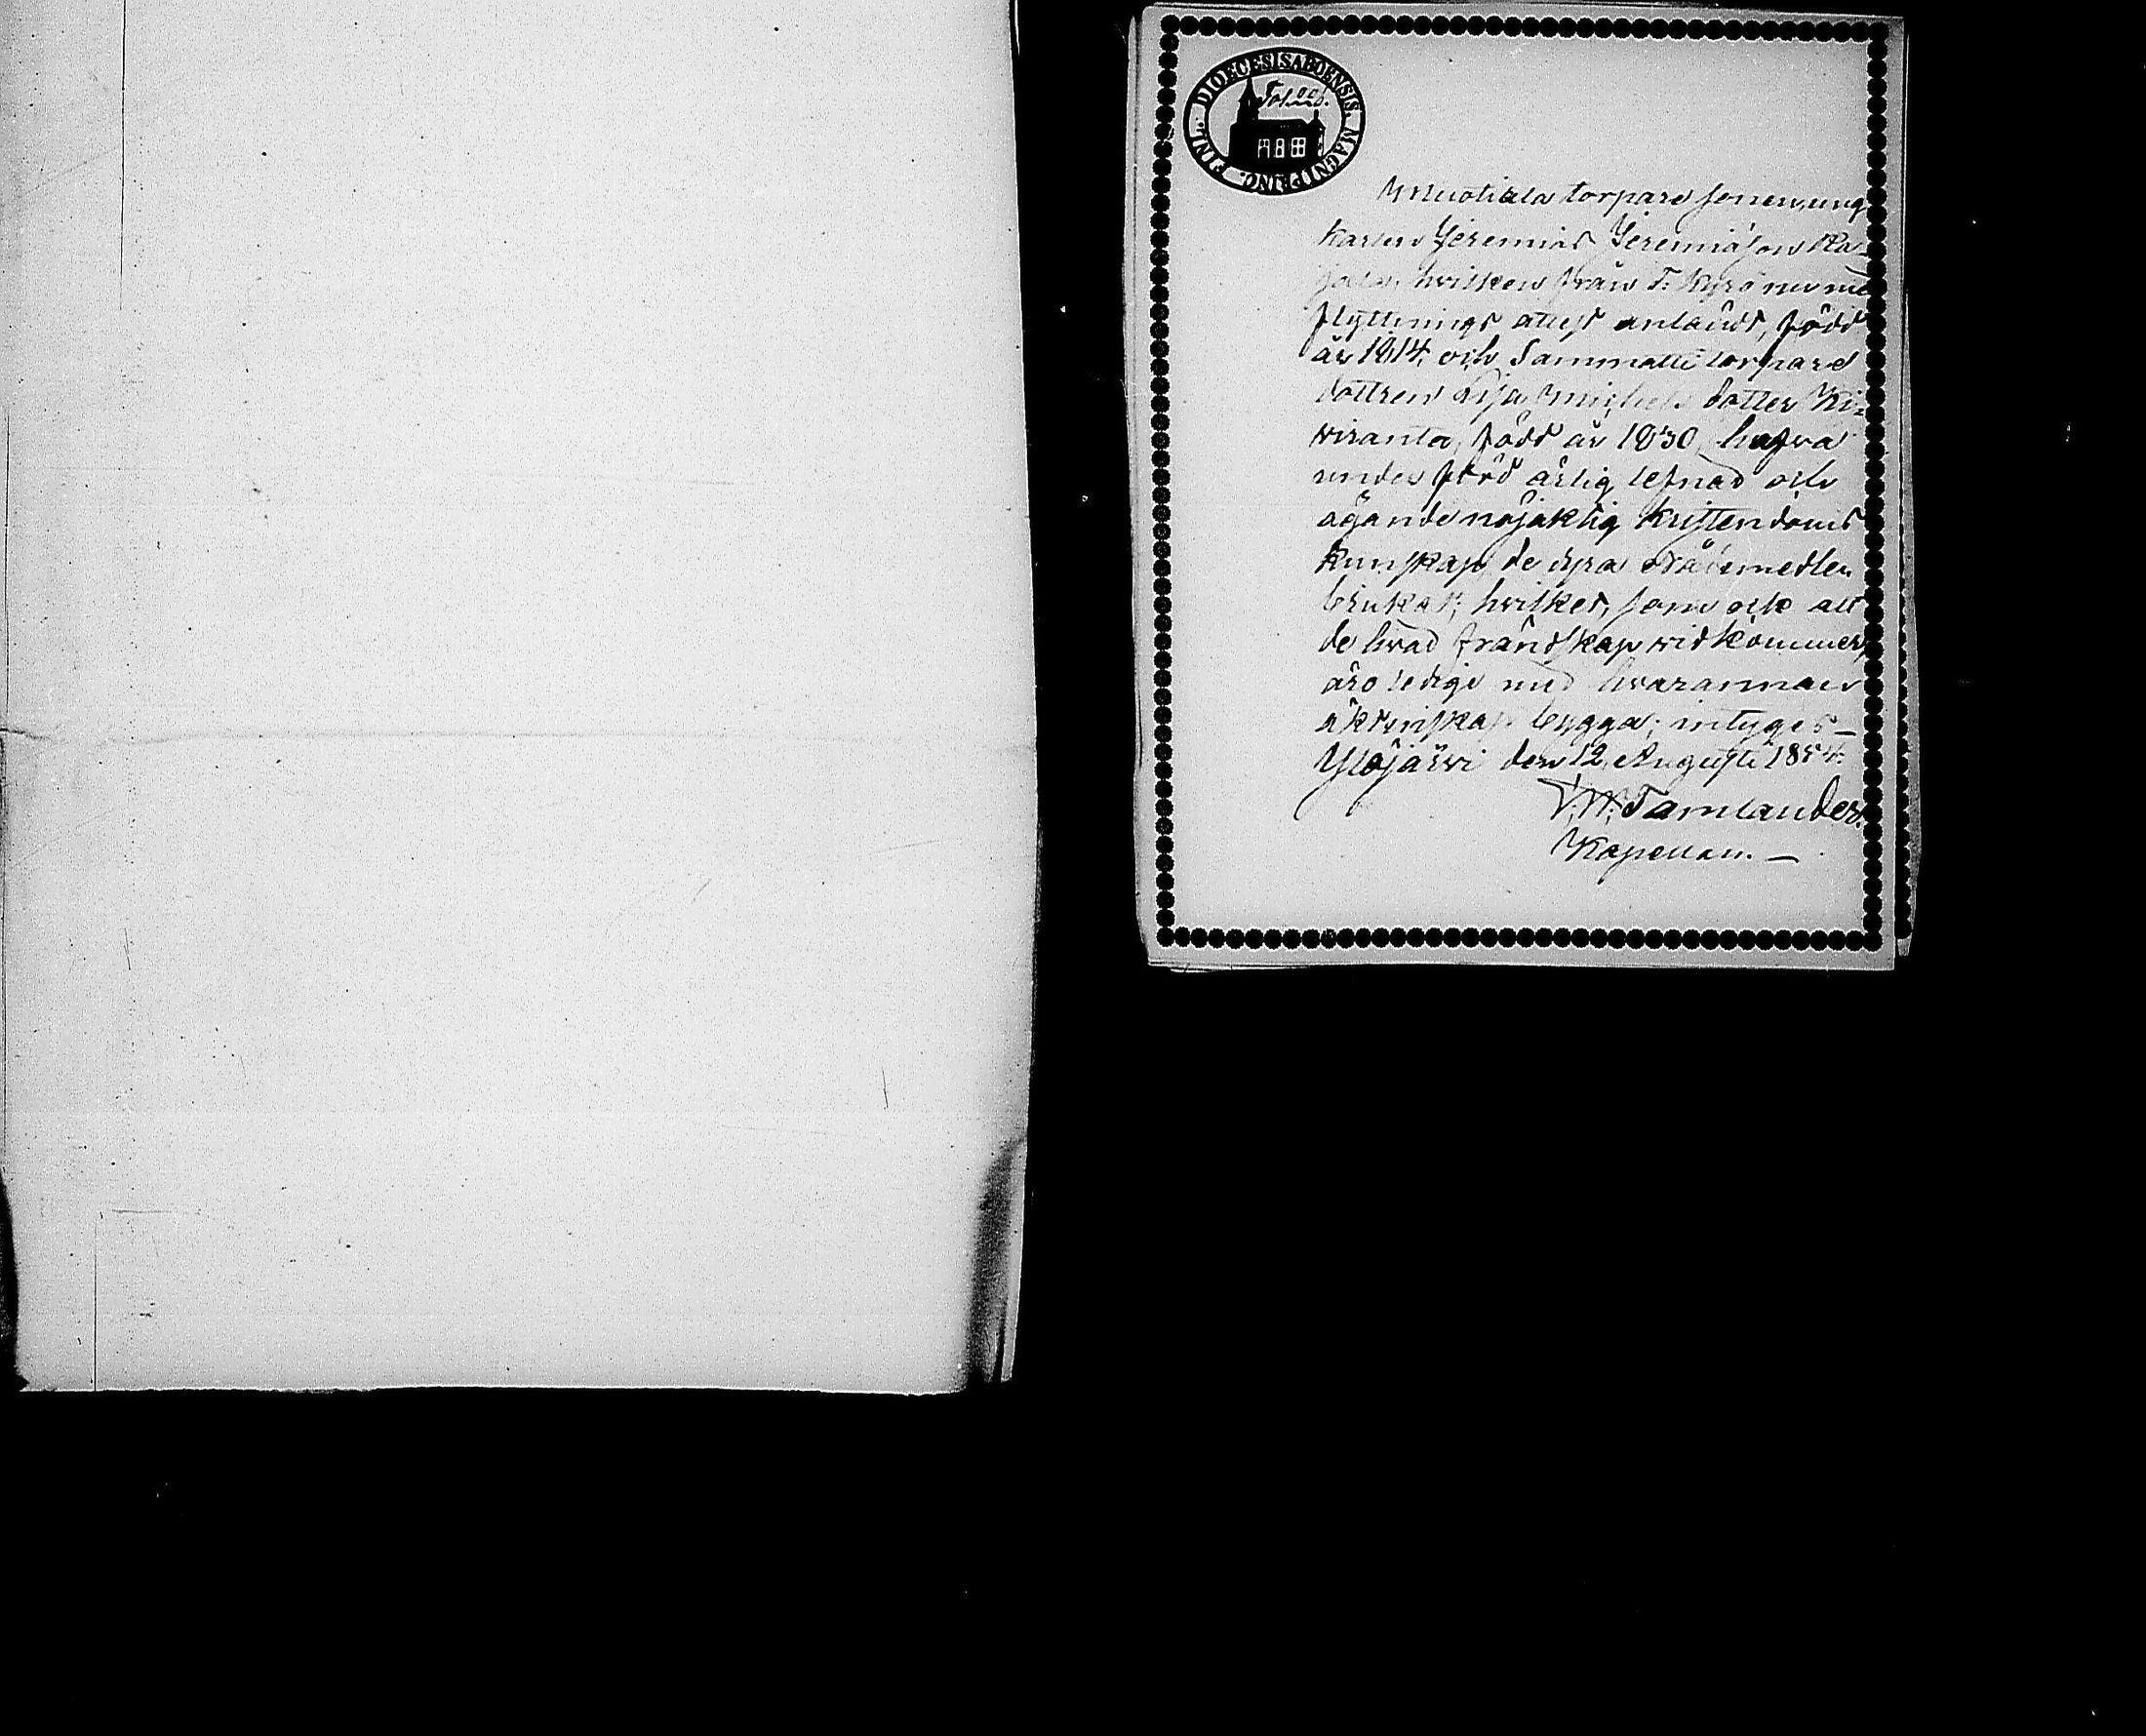 DIOECESIS ABOENSIS. MAGNI PRINC. FINL.
Mutiala torpare sonen, ung
karlen Jeremias Jeremiæson Ra-
jala, hvilken från T: Kyrö nu med
flyttnings attest anländt, född
år 1814, och Sammatti torpare
dottren Lisa Michels dotter Ki-
viranta, född år 1830, hafva
under förd ärlig lefnad och
ägande nöjaktig kristendoms
kunskap, de dyra nådemedlen
brukat; hvilket, som ock att
de hvad frändskap vidkommer,
äro ledige med hvarannan
äktenskap bygga; intyges —
Ylöjärvi den 12 Augusti 1854.
Tamlander.
Kapellan. —